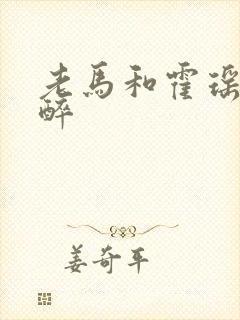 老馬和霍瑶
醉
姜奇平